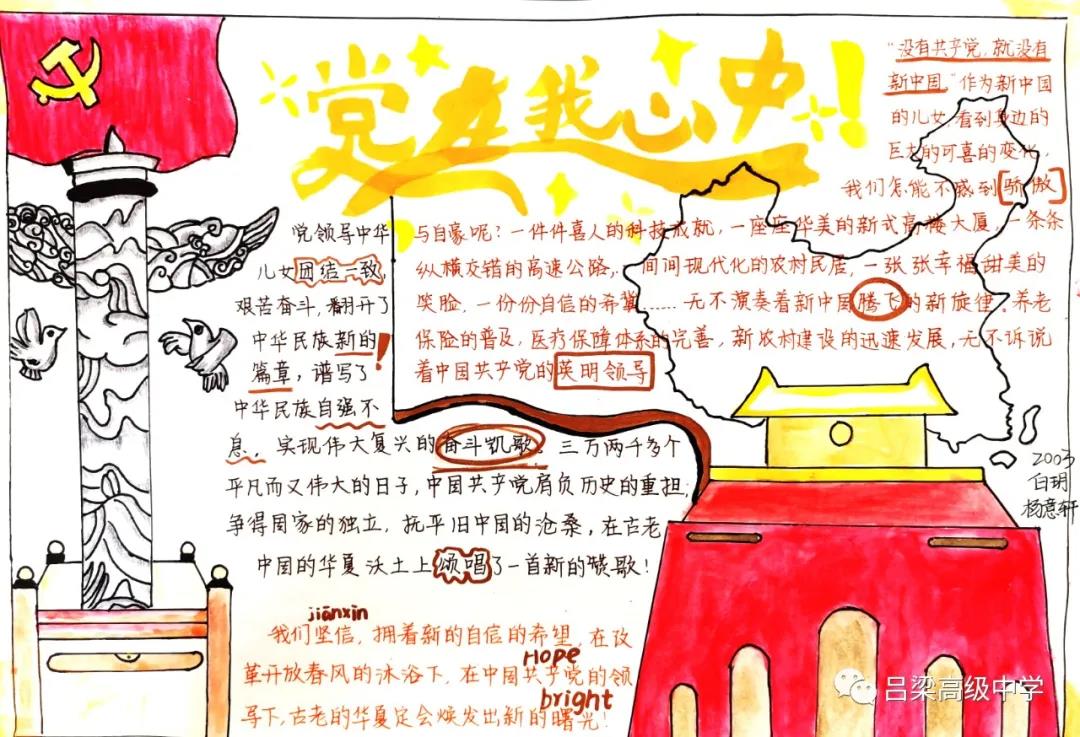 党在我心中!
"没有共产党,就没有
新中国"作为新中国
的儿女,看到身边的
巨大的可喜的变化,
我们怎能不感到骄傲
与自豪呢?一件件喜人的科技成就,一座座华美的新式高楼大厦,一条条
纵横交错的高速公路,一间间现代化的农村民居,一张张幸福甜美的
笑脸,一份份自信的希冀……无不演奏着新中国腾飞的新旋律。养老
保险的普及,医疗保障体系的完善,新农村建设的迅速发展,无不诉说
着中国共产党的英明领导
党领导中华
儿女团结一致,
艰苦奋斗,翻开了
中华民族新的
篇章,谱写了!
中华民族自强不
息,实现伟大复兴的奋斗凯歌。三万两千多个
平凡而又伟大的日子,中国共产党肩负历史的重担,
争得国家的独立,抚平旧中国的沧桑,在古老
中国的华夏沃土上颂唱了一首新的赞歌!
jiānxìn
我们坚信,拥着新的自信的希望,在改
HOPE
革开放春风的沐浴下,在中国共产党的领
bright
导下,古老的华夏定会焕发出新的曙光!
2003
白玥
杨意轩
吕梁高级中学